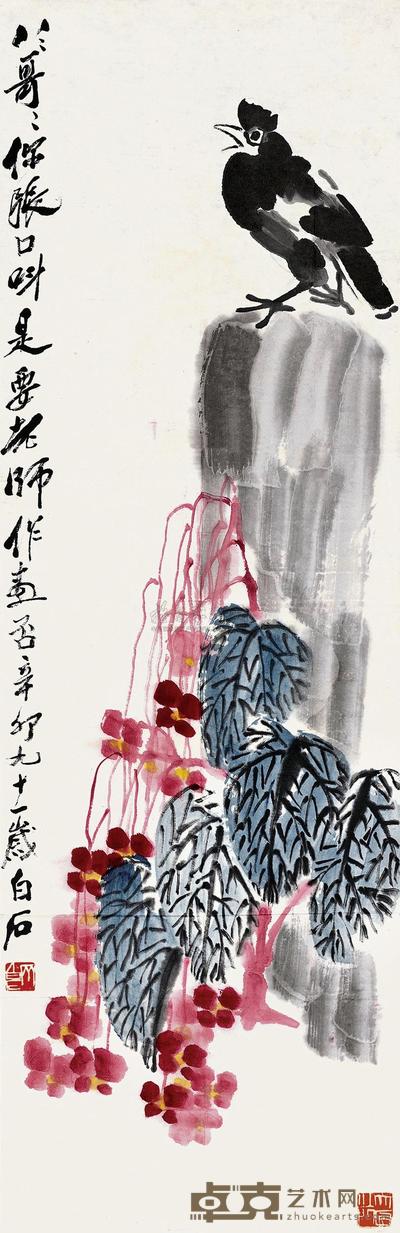 八ミ哥ミ你張口叫是要老師作畫否辛卯九十一歲白石
卓克艺术网
zhuokearts.com